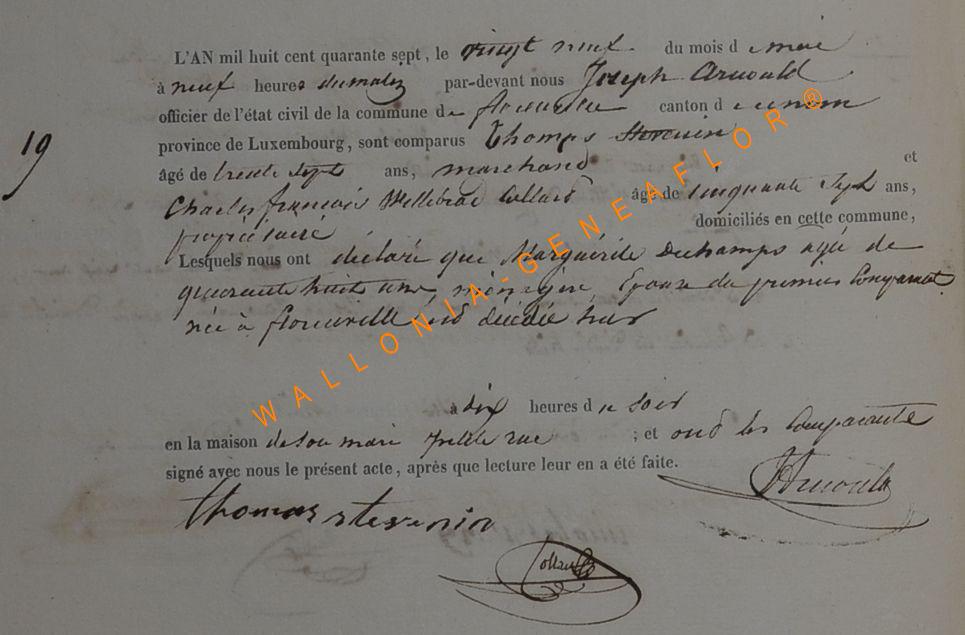 L'AN mil huit cent quarante sept, le vingt neuf du mois de mai
à neuf heures du matin par-devant nous Joseph Arnould
officier de l'état civil de la commune de florenville canton d
province de Luxembourg, sont comparus Thomas Stevenin
19
âgé de trente sept ans, marchand et
Charles françois Willibrod Collard âgé de cinquante sept ans,
propriétaire domiciliés en cette commune,
Lesquels nous ont déclaré que Marguérite Dechamps agée de
quarante huit ans, ménagère, Epouse du premier Comparant
née à florenville est décédée hier
à dix heures du soir
en la maison de son mari petite rue ; et ont les Comparants
signé avec nous le présent acte, après que lecture leur en a été faite.
Arnould
thomas stevenin
Collard
WALLONIA-GENEAFLOR ®